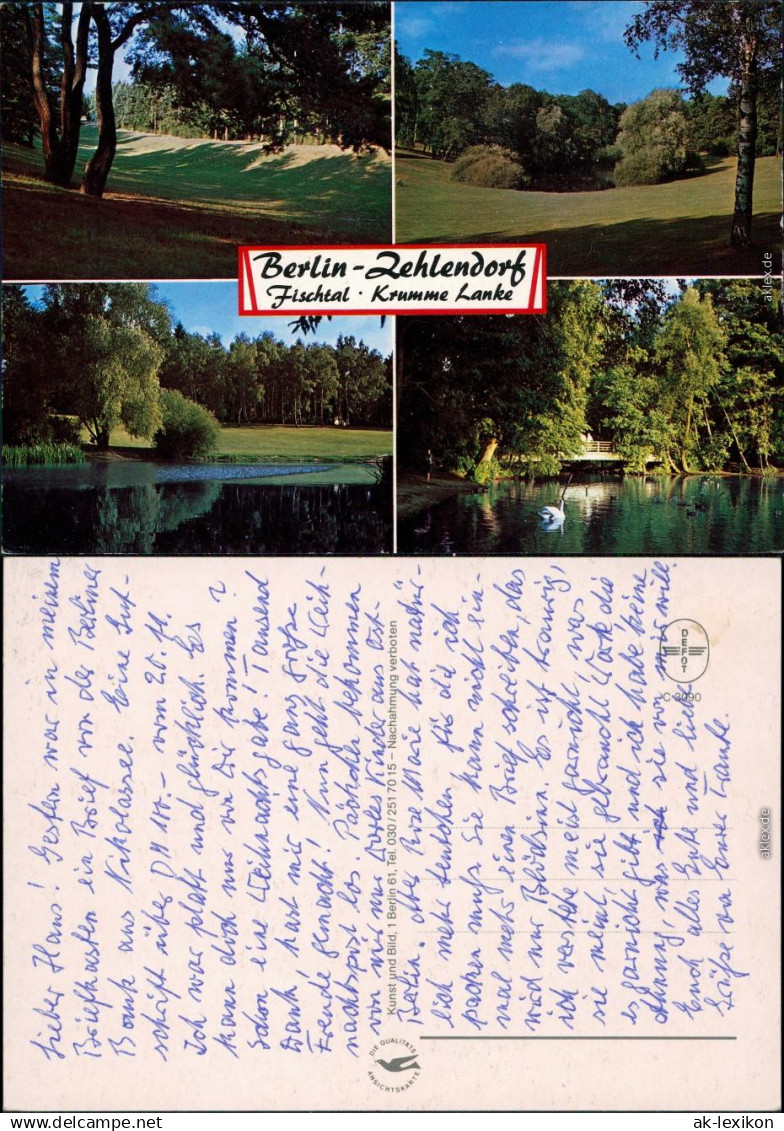 Berlin-Zehlendorf
Fischtal · Krumme Lanke
aklex.de
Lieber Hans! Gestern war in meinem
Briefkasten ein Brief von der Berliner
Bank aus Nikolassee. Eine Gut-
schrift über DM 100.- vom 20. 11.
Ich war platt und glücklich. Es
kann doch nur von Dir kommen?
Schon eine Weihnachtsgabe! - Tausend
Dank, hast mir eine ganz große
Freude gemacht. Nun geht die Weih-
nachtspost los. Päckchen bekommen
von mir nur Kinder aus Ost-
Berlin. Aber Rose Marie hat natür-
lich mehr für die ich
packen muß. Sie kann nicht ein-
mal mehr einen Brief schreiben, das
wird nur Blödsinn. Es ist traurig,
ich verstehe meist garnicht, was
sie meint, sie gebraucht Worte die
es garnicht gibt und ich habe keine
Ahnung, was sie von mir will.
Euch alles Gute und liebe
Grüße von Eurer Tante.
Kunst und Bild, 1 Berlin 61, Tel. 030/2517015 – Nachahmung verboten
DEFOT
C 3090
DIE QUALITÄTS
ANSICHTSKARTE
aklex.de
www.delcampe.net
ak-lexikon